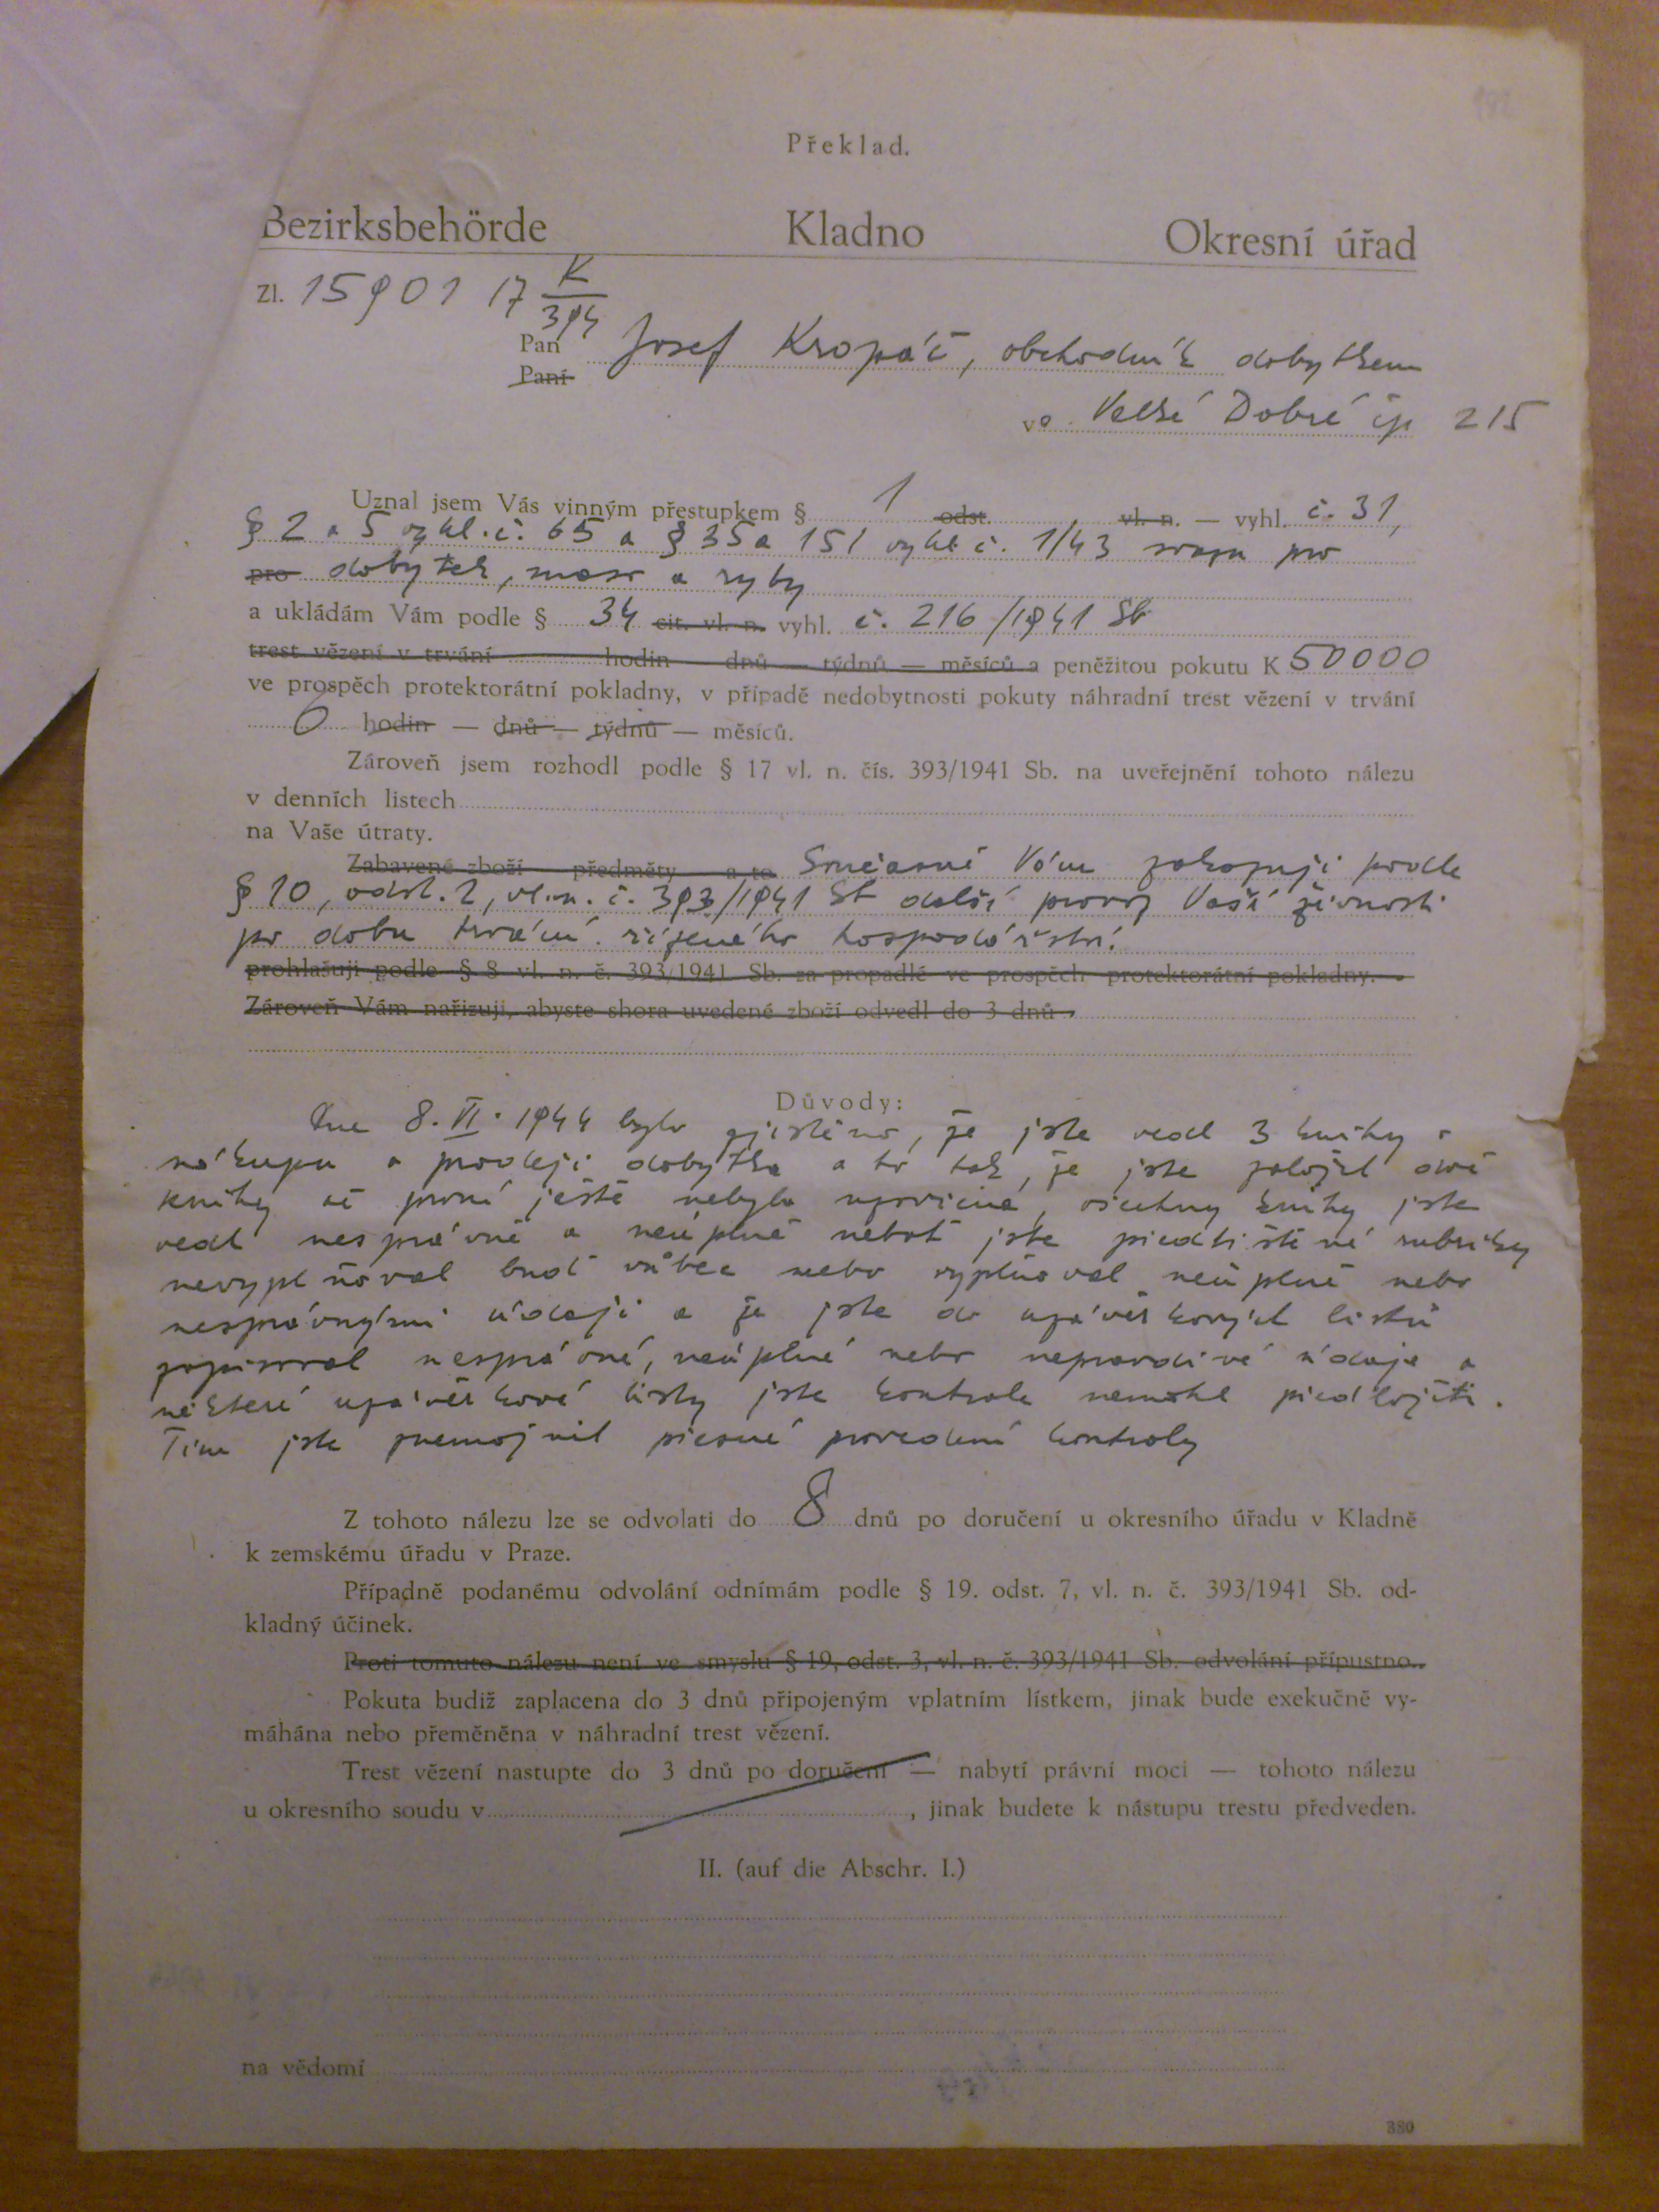 Překlad.
Bezirksbehörde Kladno Okresní úřad
Zl. 15901 17 K
394
Pan Josef Kropáč, obchodník dobytkem
Paní
ve Velké Dobré čp 215
Uznal jsem Vás vinným přestupkem § 1 odst. vl. n. — vyhl. č. 31,
§ 2 a 5 vyhl. č. 65 a § 35 a 151 vyhl. č. 1/43 svazu pro
pro dobytek, maso a ryby
a ukládám Vám podle § 34 cit. vl. n. vyhl. č. 216/1941 Sb
trest vězení v trvání hodin — dnů — týdnů — měsíců a peněžitou pokutu K 50000
ve prospěch protektorátní pokladny, v případě nedobytnosti pokuty náhradní trest vězení v trvání
6 hodin — dnů — týdnů — měsíců.
Zároveň jsem rozhodl podle § 17 vl. n. čís. 393/1941 Sb. na uveřejnění tohoto nálezu
v denních listech
na Vaše útraty.
Zabavené zboží předměty a to Současně Vám zakazuji podle
§ 10, odst. 2, vl. n. č. 393/1941 Sb další provoz Vaší živnosti
po dobu trvání řízeného hospodářství.
prohlašuji podle § 8 vl. n. č. 393/1941 Sb. za propadlé ve prospěch protektorátní pokladny.
Zároveň Vám nařizuji, abyste shora uvedené zboží odvedl do 3 dnů
Důvody:
Dne 8. VI. 1944 bylo zjištěno, že jste vedl 3 knihy o
nákupu a prodeji dobytka a to tak, že jste založil dvě
knihy až první ještě nebyla , všechny knihy jste
vedl nesprávně a neúplně neboť jste předtištěné rubriky
nevyplňoval buď vůbec nebo vyplňoval neúplně nebo
nesprávnými údaji a že jste do uzávěrkových lístků
zapisoval nesprávné, neúplné nebo nepravdivé údaje a
některé uzávěrkové listy jste kontrole nemohl předložiti.
Tím jste znemožnil přesné provedení kontroly
Z tohoto nálezu lze se odvolati do 8 dnů po doručení u okresního úřadu v Kladně
k zemskému úřadu v Praze.
Případně podanému odvolání odnímám podle § 19. odst. 7, vl. n. č. 393/1941 Sb. od-
kladný účinek.
Proti tomuto nálezu není ve smyslu § 19, odst. 3, vl. n. č. 393/1941 Sb. odvolání přípustno.
Pokuta budiž zaplacena do 3 dnů připojeným vplatním lístkem, jinak bude exekučně vy-
máhána nebo přeměněna v náhradní trest vězení.
Trest vězení nastupte do 3 dnů po doručení — nabytí právní moci — tohoto nálezu
u okresního soudu v , jinak budete k nástupu trestu předveden.
II. (auf die Abschr. I.)
na vědomí
380